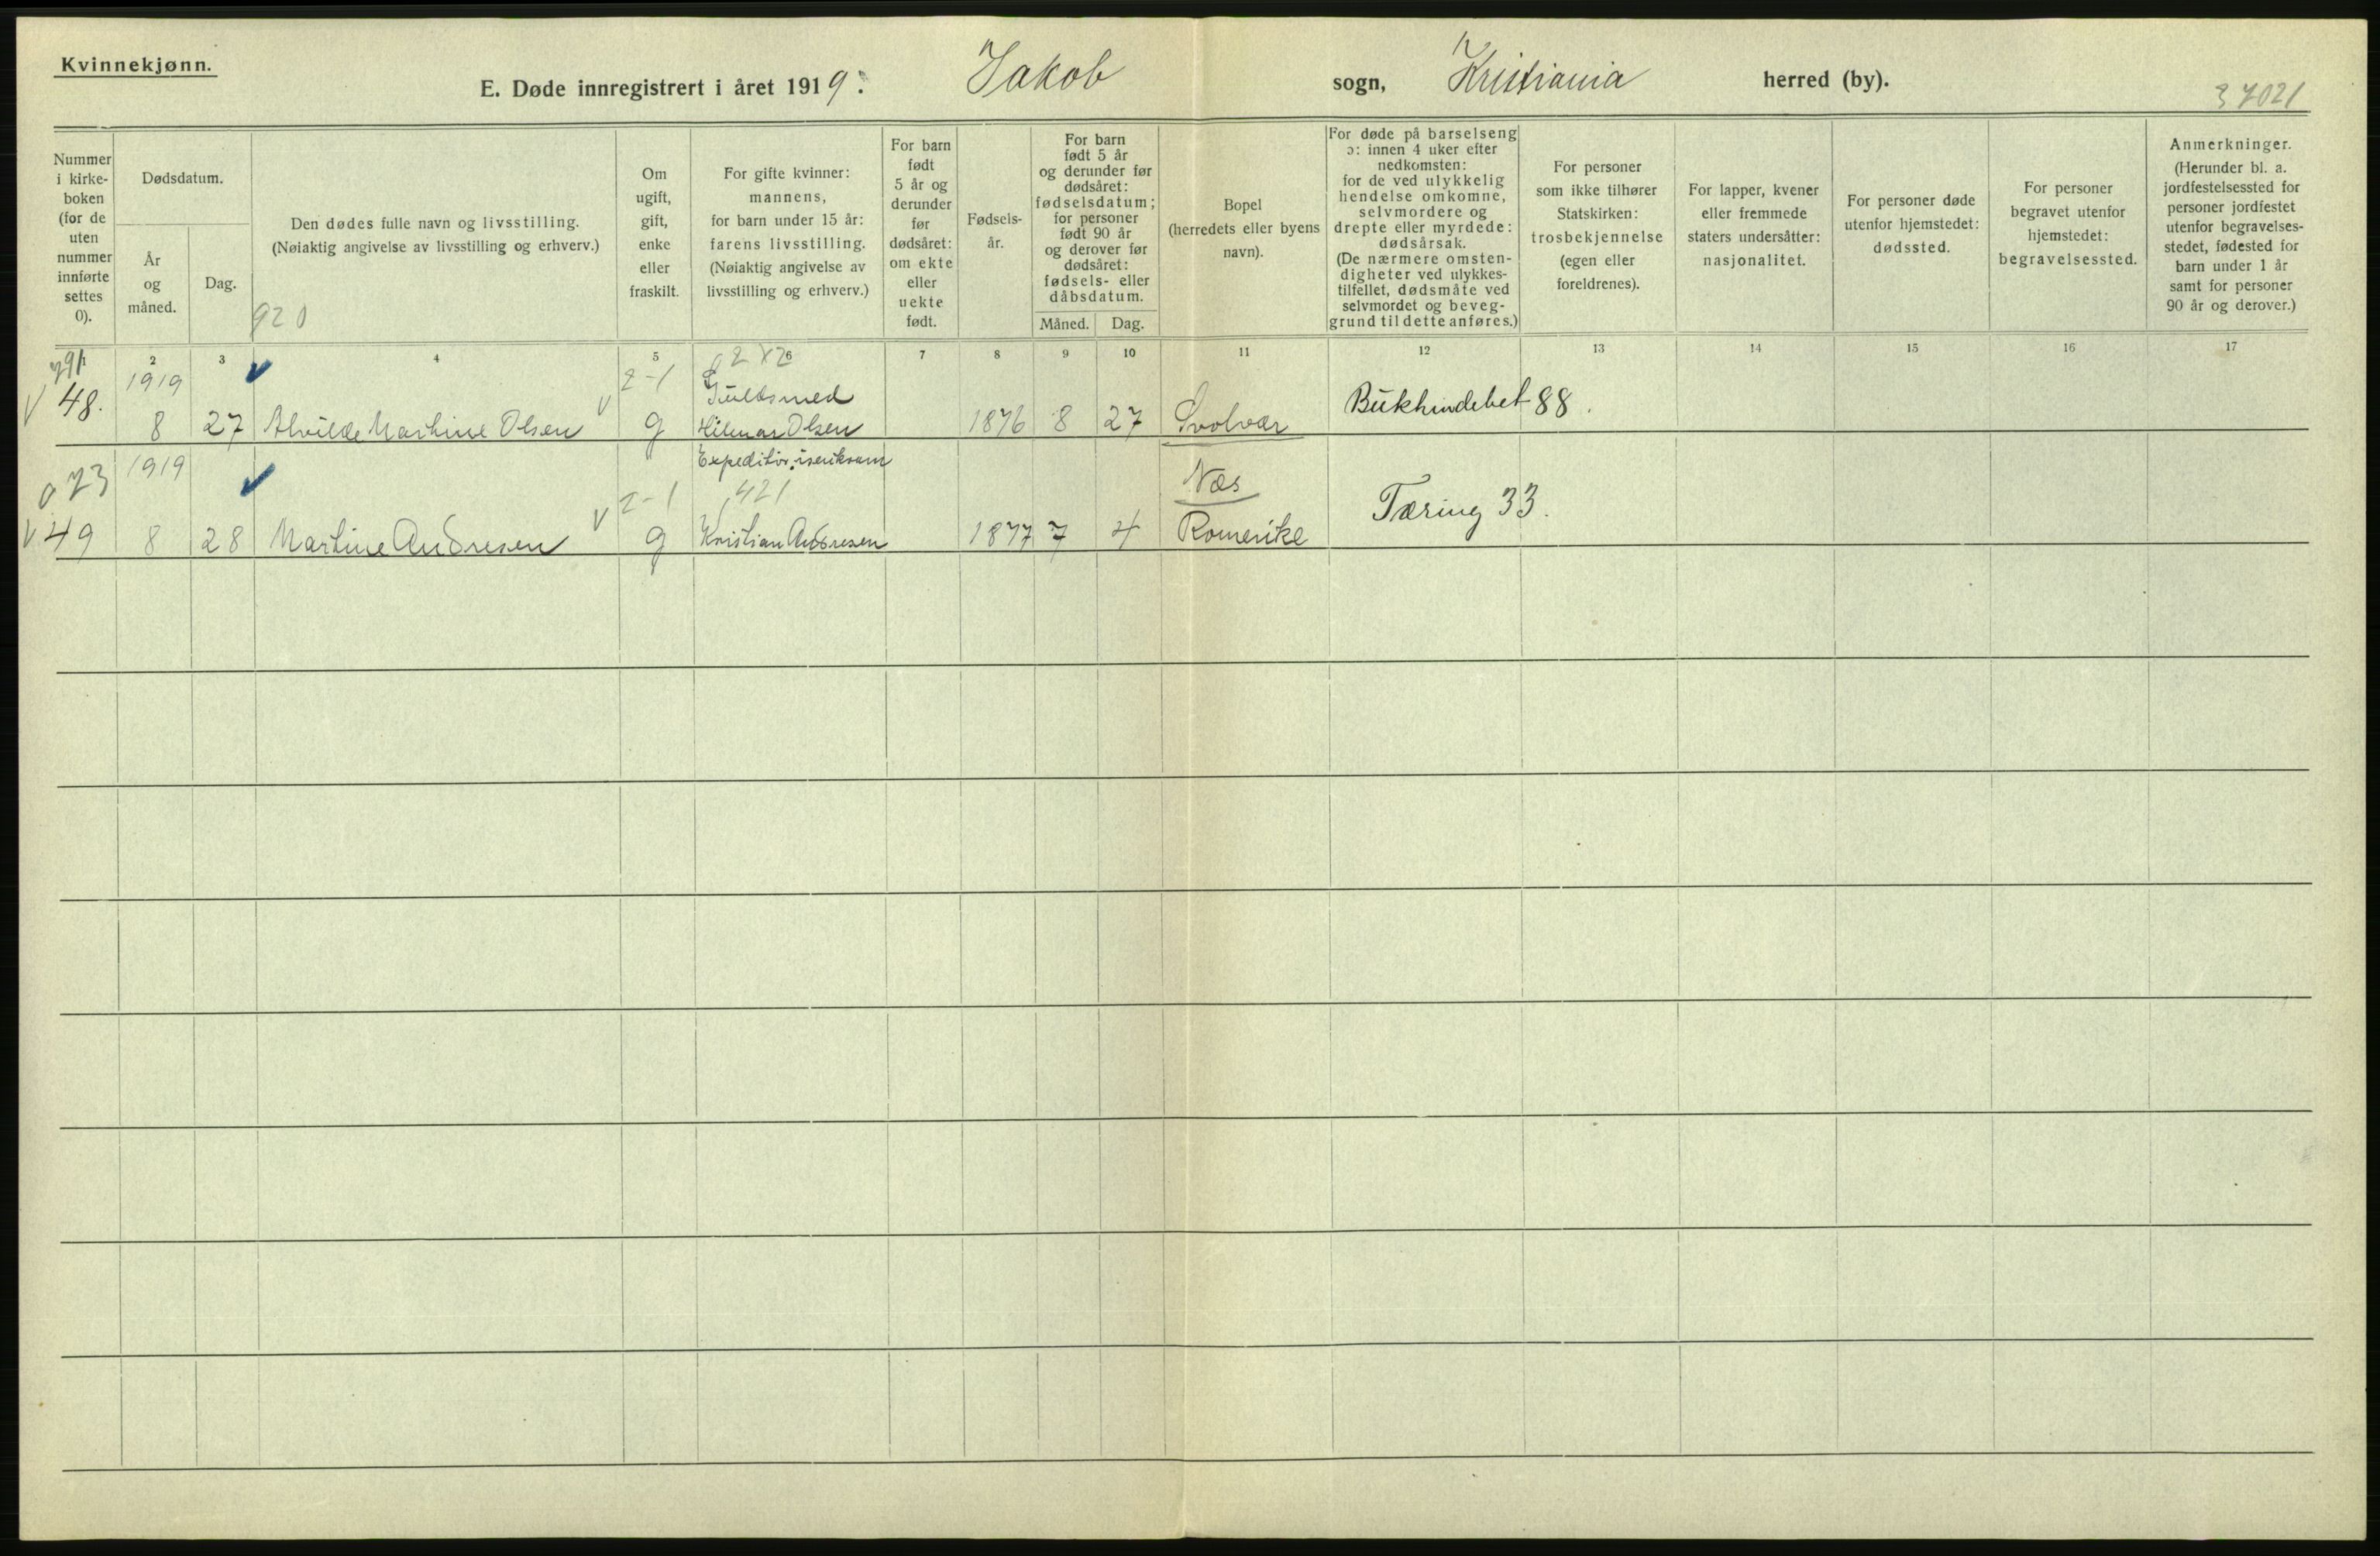 Kvinnekjønn.
E. Døde innregistrert i året 1919. Jakob sogn, Kristiania herred (by).
37021
Nummer i kirke-boken (for de uten nummer innførte settes 0).
Dødsdatum.
År og måned.
Dag.
Den dødes fulle navn og livsstilling.
(Nøiaktig angivelse av livsstilling og erhverv.)
920
Om ugift, gift, enke eller fraskilt.
For gifte kvinner: mannens, for barn under 15 år: farens livsstilling.
(Nøiaktig angivelse av livsstilling og erhverv.)
For barn født 5 år og derunder før dødsåret: om ekte eller uekte født.
Fødsels-år.
For barn født 5 år og derunder før dødsåret: fødselsdatum; for personer født 90 år og derover før dødsåret: fødsels- eller dåbsdatum.
Måned. Dag.
Bopel (herredets eller byens navn).
For døde på barselseng ɔ: innen 4 uker efter nedkomsten: for de ved ulykkelig hendelse omkomne, selvmordere og drepte eller myrdede: dødsårsak.
(De nærmere omsten-digheter ved ulykkes-tilfellet, dødsmåte ved selvmordet og beveg-grund til dette anføres.)
For personer som ikke tilhører Statskirken: trosbekjennelse (egen eller foreldrenes).
For lapper, kvener eller fremmede staters undersåtter: nasjonalitet.
For personer døde utenfor hjemstedet: dødssted.
For personer begravet utenfor hjemstedet: begravelsessted.
Anmerkninger.
(Herunder bl. a. jordfestelsessted for personer jordfestet utenfor begravelses-stedet, fødested for barn under 1 år samt for personer 90 år og derover.)
1 2 3 4 5 6 7 8 9 10 11 12 13 14 15 16 17
1919 2-1 Gullsmed
48. 8 27 Alvilde Martine Olsen g Hilmar Olsen 1876 8 27 Svolvær Bukhindebet 88.
1919 Expeditør
2-1 421 Næs
49 8 28 Martine Andresen g Kristian Andresen 1877 7 4 Romerike Tæring 33.